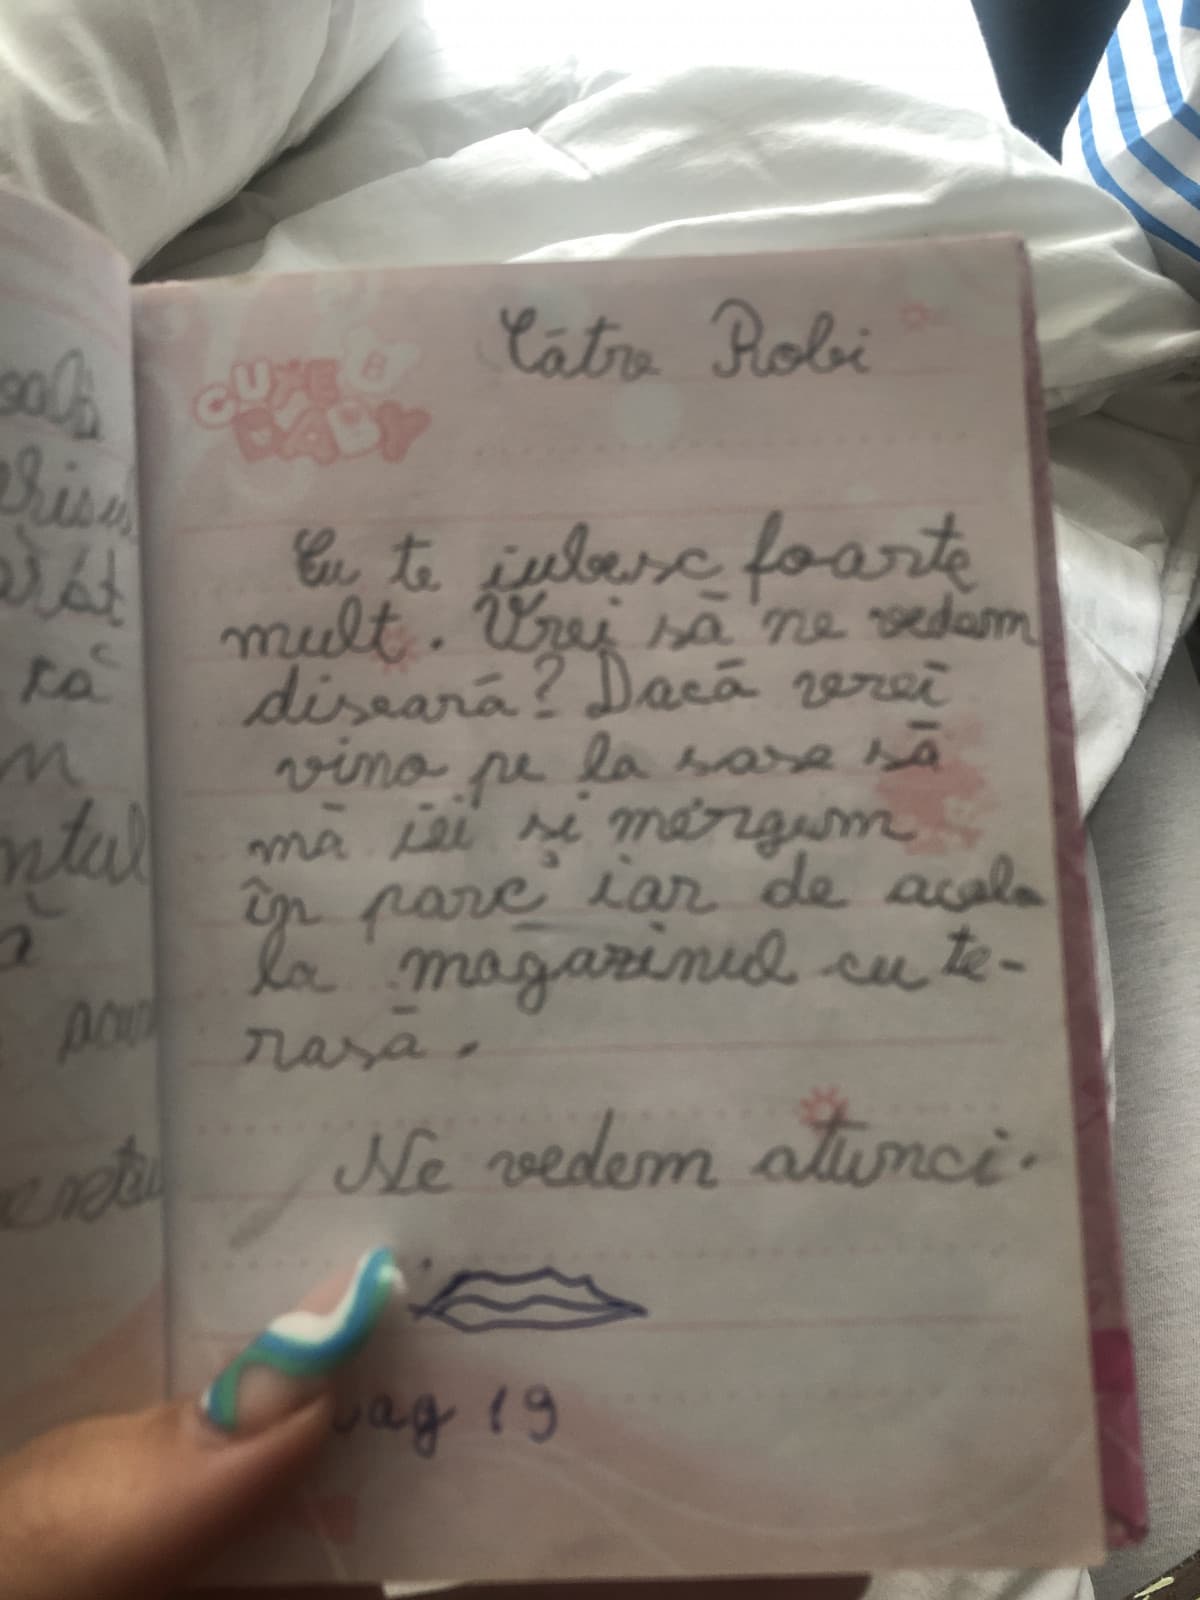 CUTE BABY
Către Robi
Eu te iubesc foarte
mult. Vrei să ne vedem
diseară? Dacă vrei
vino pe la sase să
mă iei și mergem
în parc iar de acolo
la magazinul cu te-
rasă.
Ne vedem atunci.
pag 19